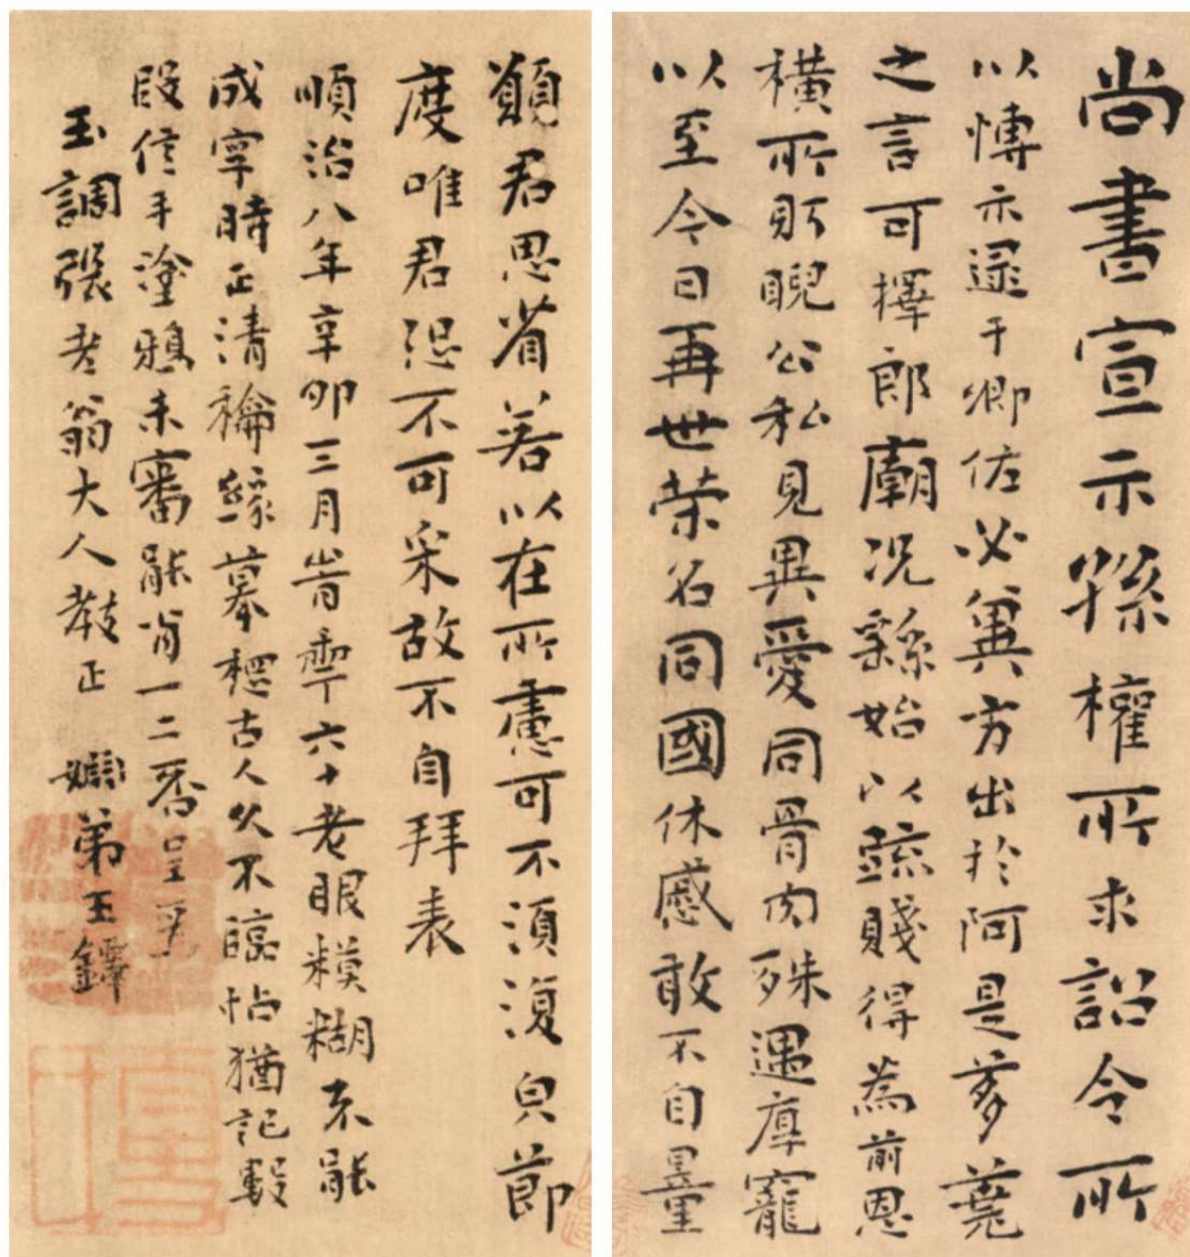 尚書宣示孫權所求詔令所
以慱示逯于卿佐必兾方出於阿是芻蕘
之言可擇郎廟況繇始以疏賤得為前恩
橫所盻睨公私見異愛同骨肉殊遇厚寵
以至今日再世荣名同國休慼敢不自量
顛君思省若以在所慮可不須復皃節
度唯君恐不可采故不自拜表
順治八年辛卯三月旹六十老眼糢糊不能
成字時正清緣摹想古人久不臨帖猶記數
段信手塗鴉未審能肖一二否呈
玉調張老翁大人教正 姻弟王鐸